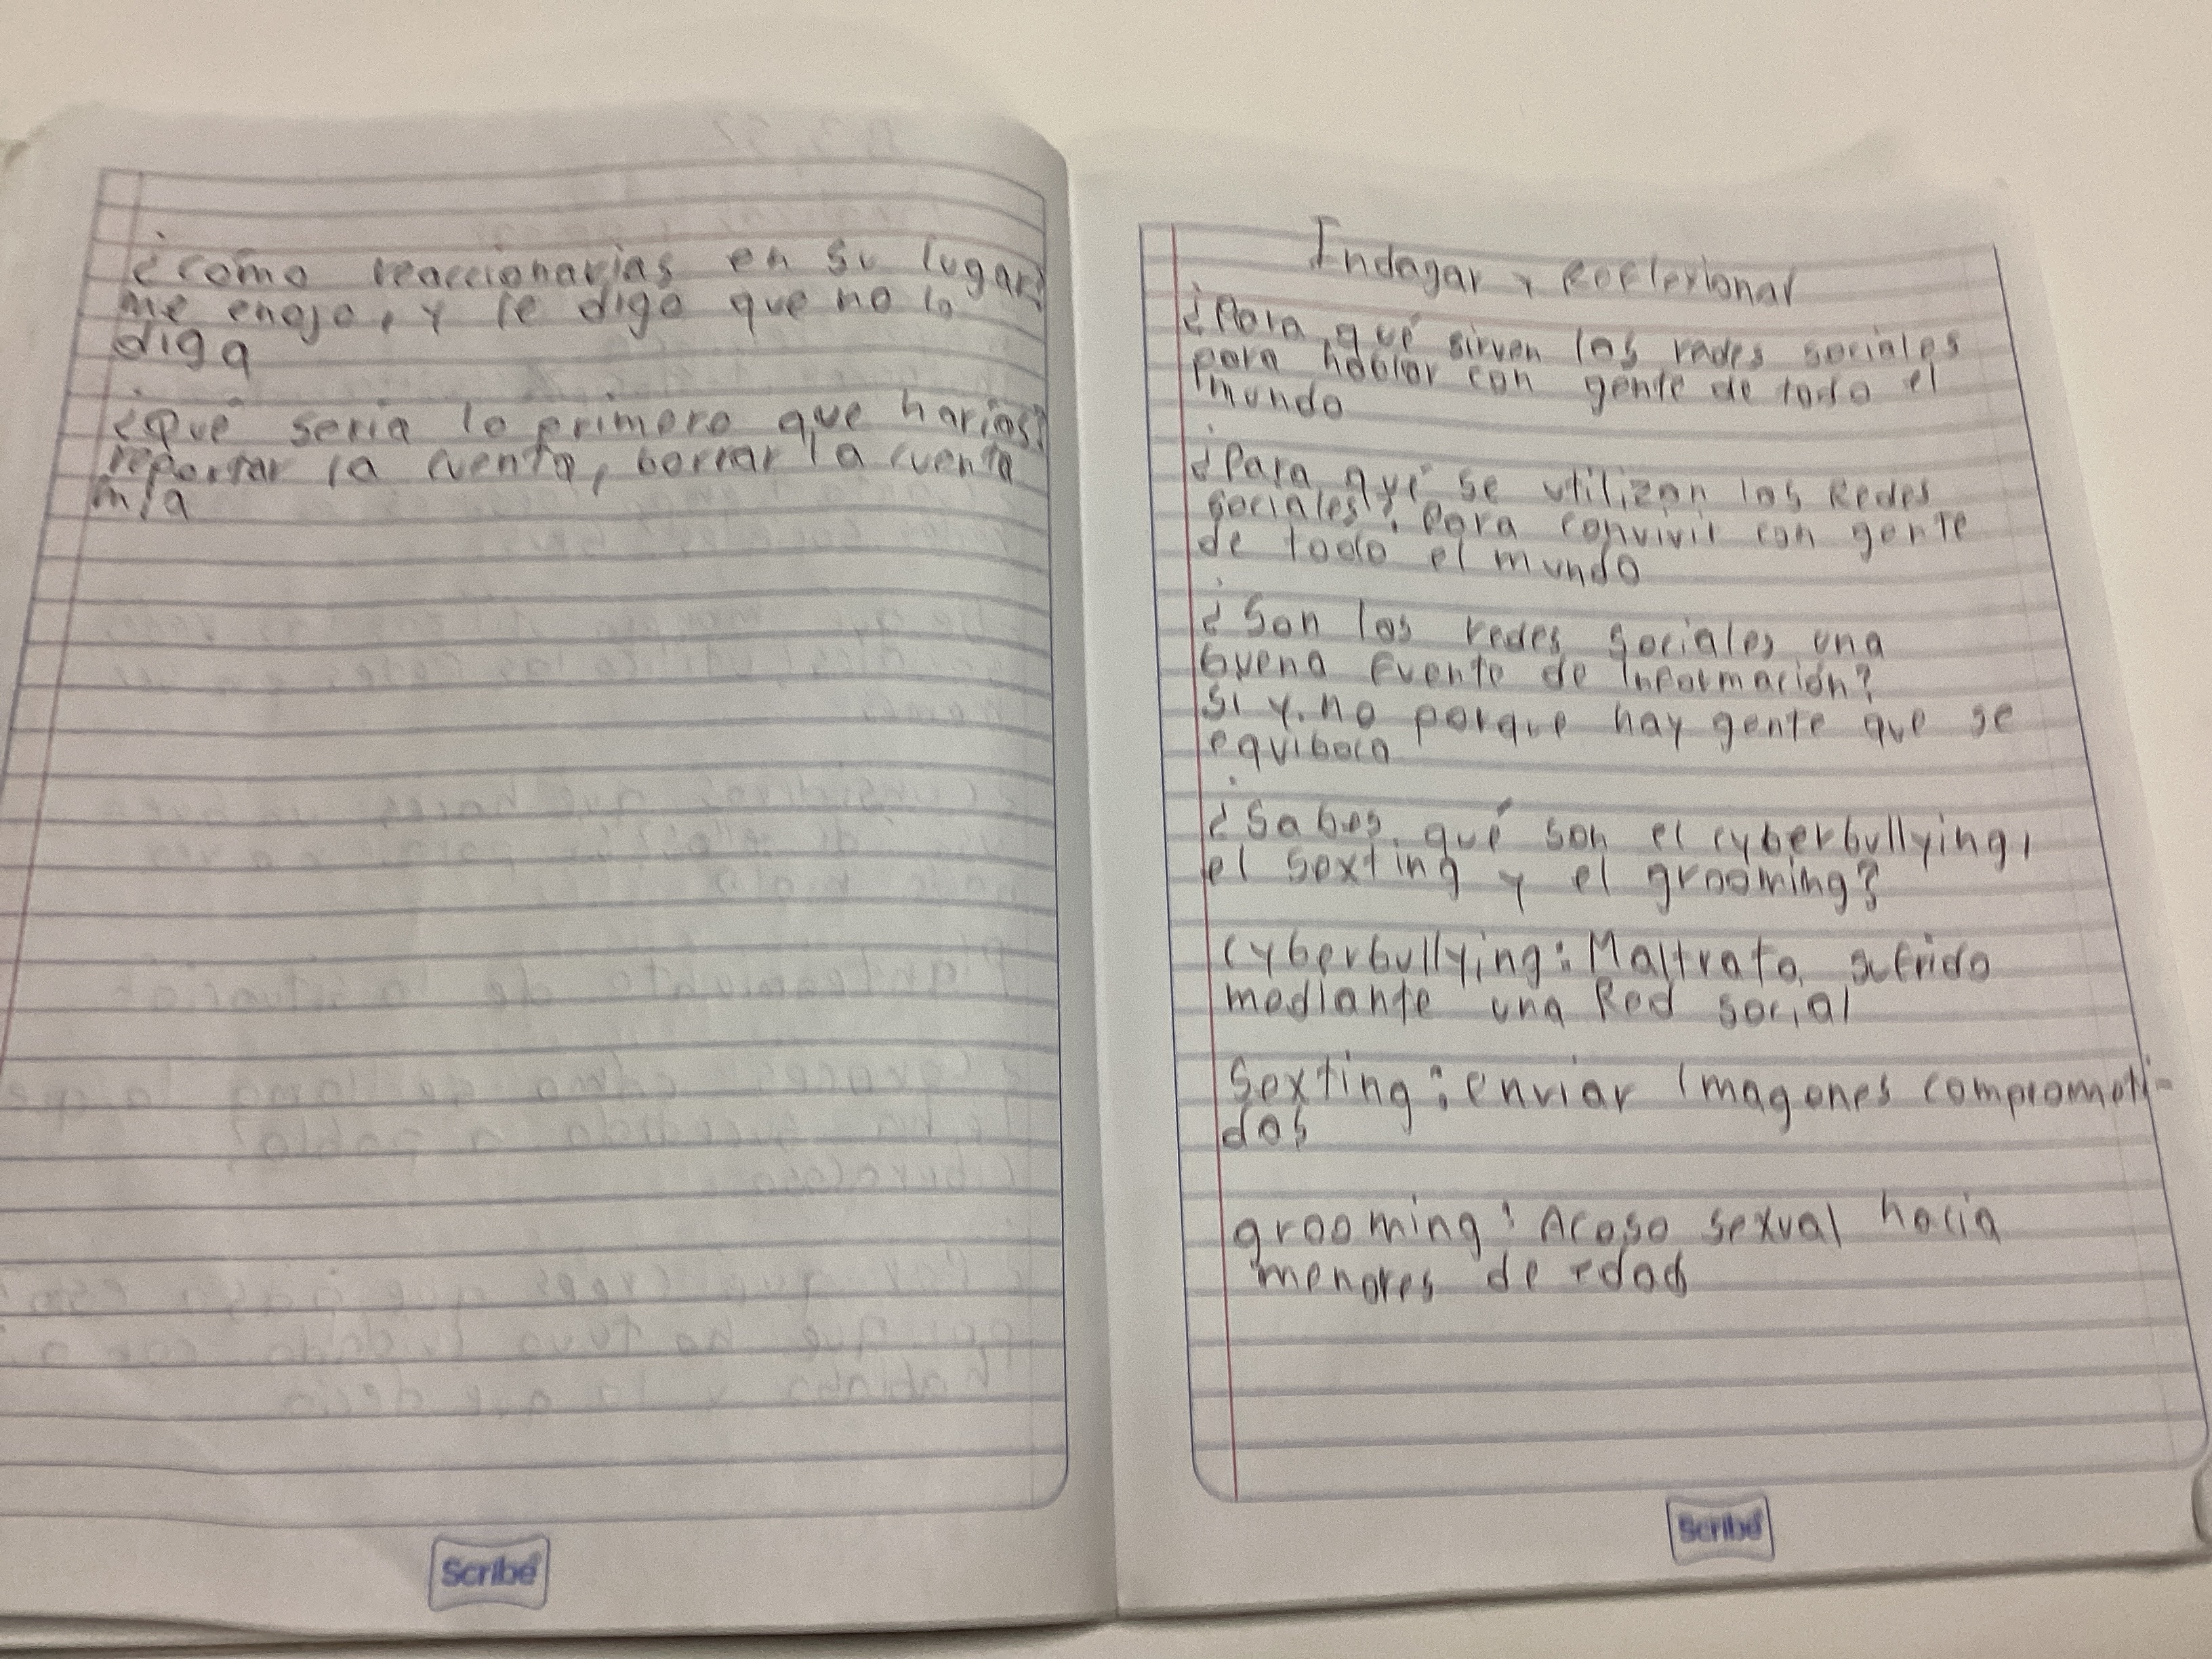 ¿como reaccionarias en su lugar?
me enojo, y le digo que no lo
diga
¿Qué seria lo primero que harías?
reportar la cuenta, borrar la cuenta
mia
Scribe
Indagar y Reflexional
¿Para qué sirven las redes sociales
para hablar con gente de todo el
mundo
¿Para qué se utilizan las Redes
sociales? Para convivir con gente
de todo el mundo
¿Son las redes sociales una
buena fuente de Información?
Si y no porque hay gente que se
equiboca
¿Sabes qué son el cyberbullying,
el sexting y el grooming?
Cyberbullying: Maltrato sufrido
mediante una Red social
Sexting: enviar Imagenes compromoti-
dos
grooming: Acoso sexual hacia
menores de edad
Scribe